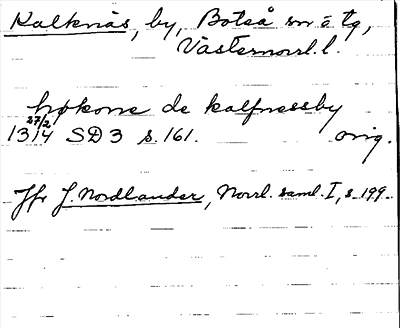 Kalknäs, by, Boteå sn o tg,
Västernorrl. l.
håkone de kalfnessby
27/2
1314 SD 3 s. 161. orig.
Jfr J. Nordlander, Norrl. saml. I, s. 199.